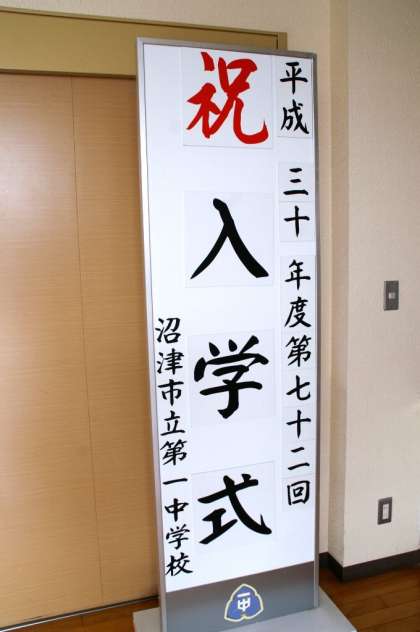 平成 三十 年度第七十二回
祝 入学式
沼津市立第一中学校
一中